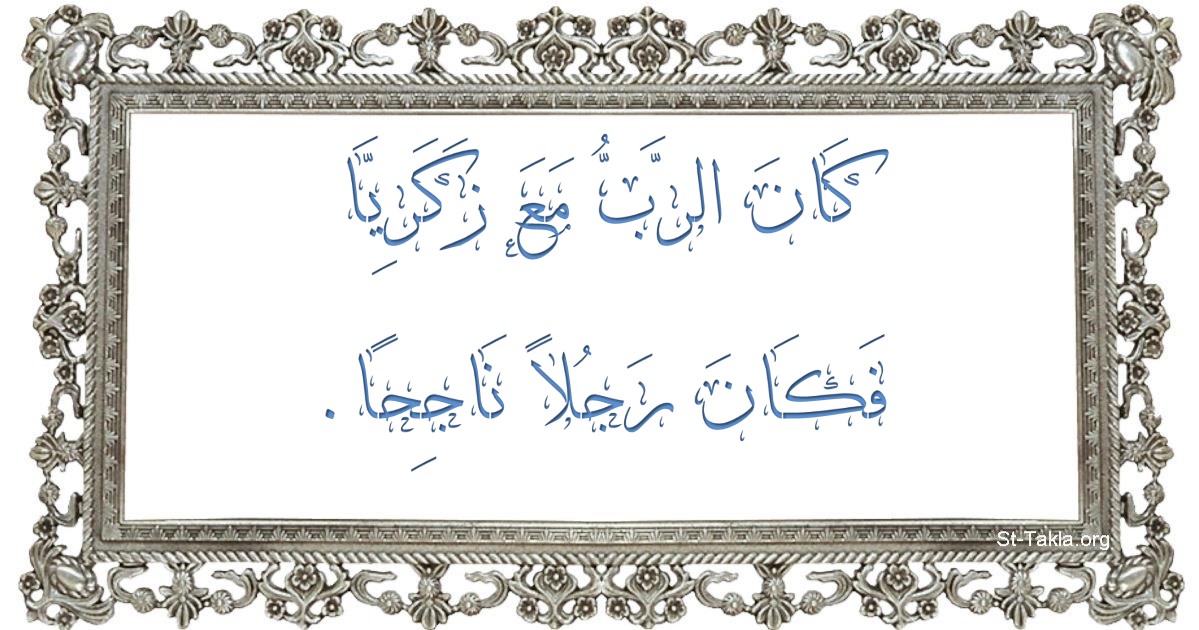 كَانَ الرَّبُّ مَعَ زَكَرِيَّا
فَكَانَ رَجُلاً نَاجِحًا .
St-Takla.org